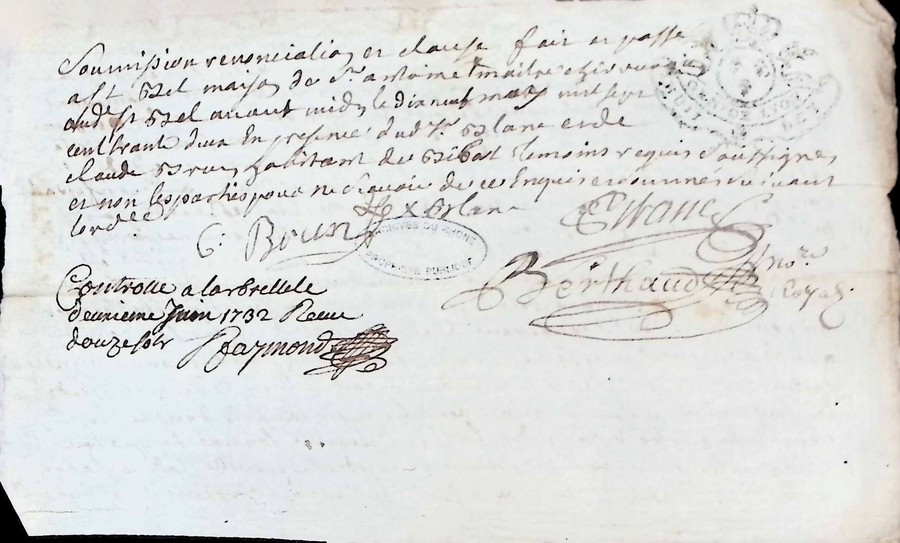 Soumission renonciation et clause fait et passé
a St Bel maison de Sr antoine maitre chirurgien
aud. St Bel avant midy le dixneuf may mil sept
cent trante deux En presence dud. Sr Blanc et de
claude Brun habitant de St Bel temoins requis soussignes
et non les parties pour ne scavoir de ce Enquis et sommés suivant
lord.ce
C. Brun Blanc
ARCHIVES DU RHONE
PROPRIETE PUBLIQUE
Berthaud no.re
Royal
Controlle a larbresle le
deuxieme Juin 1732 Receu
douze sols Raymond